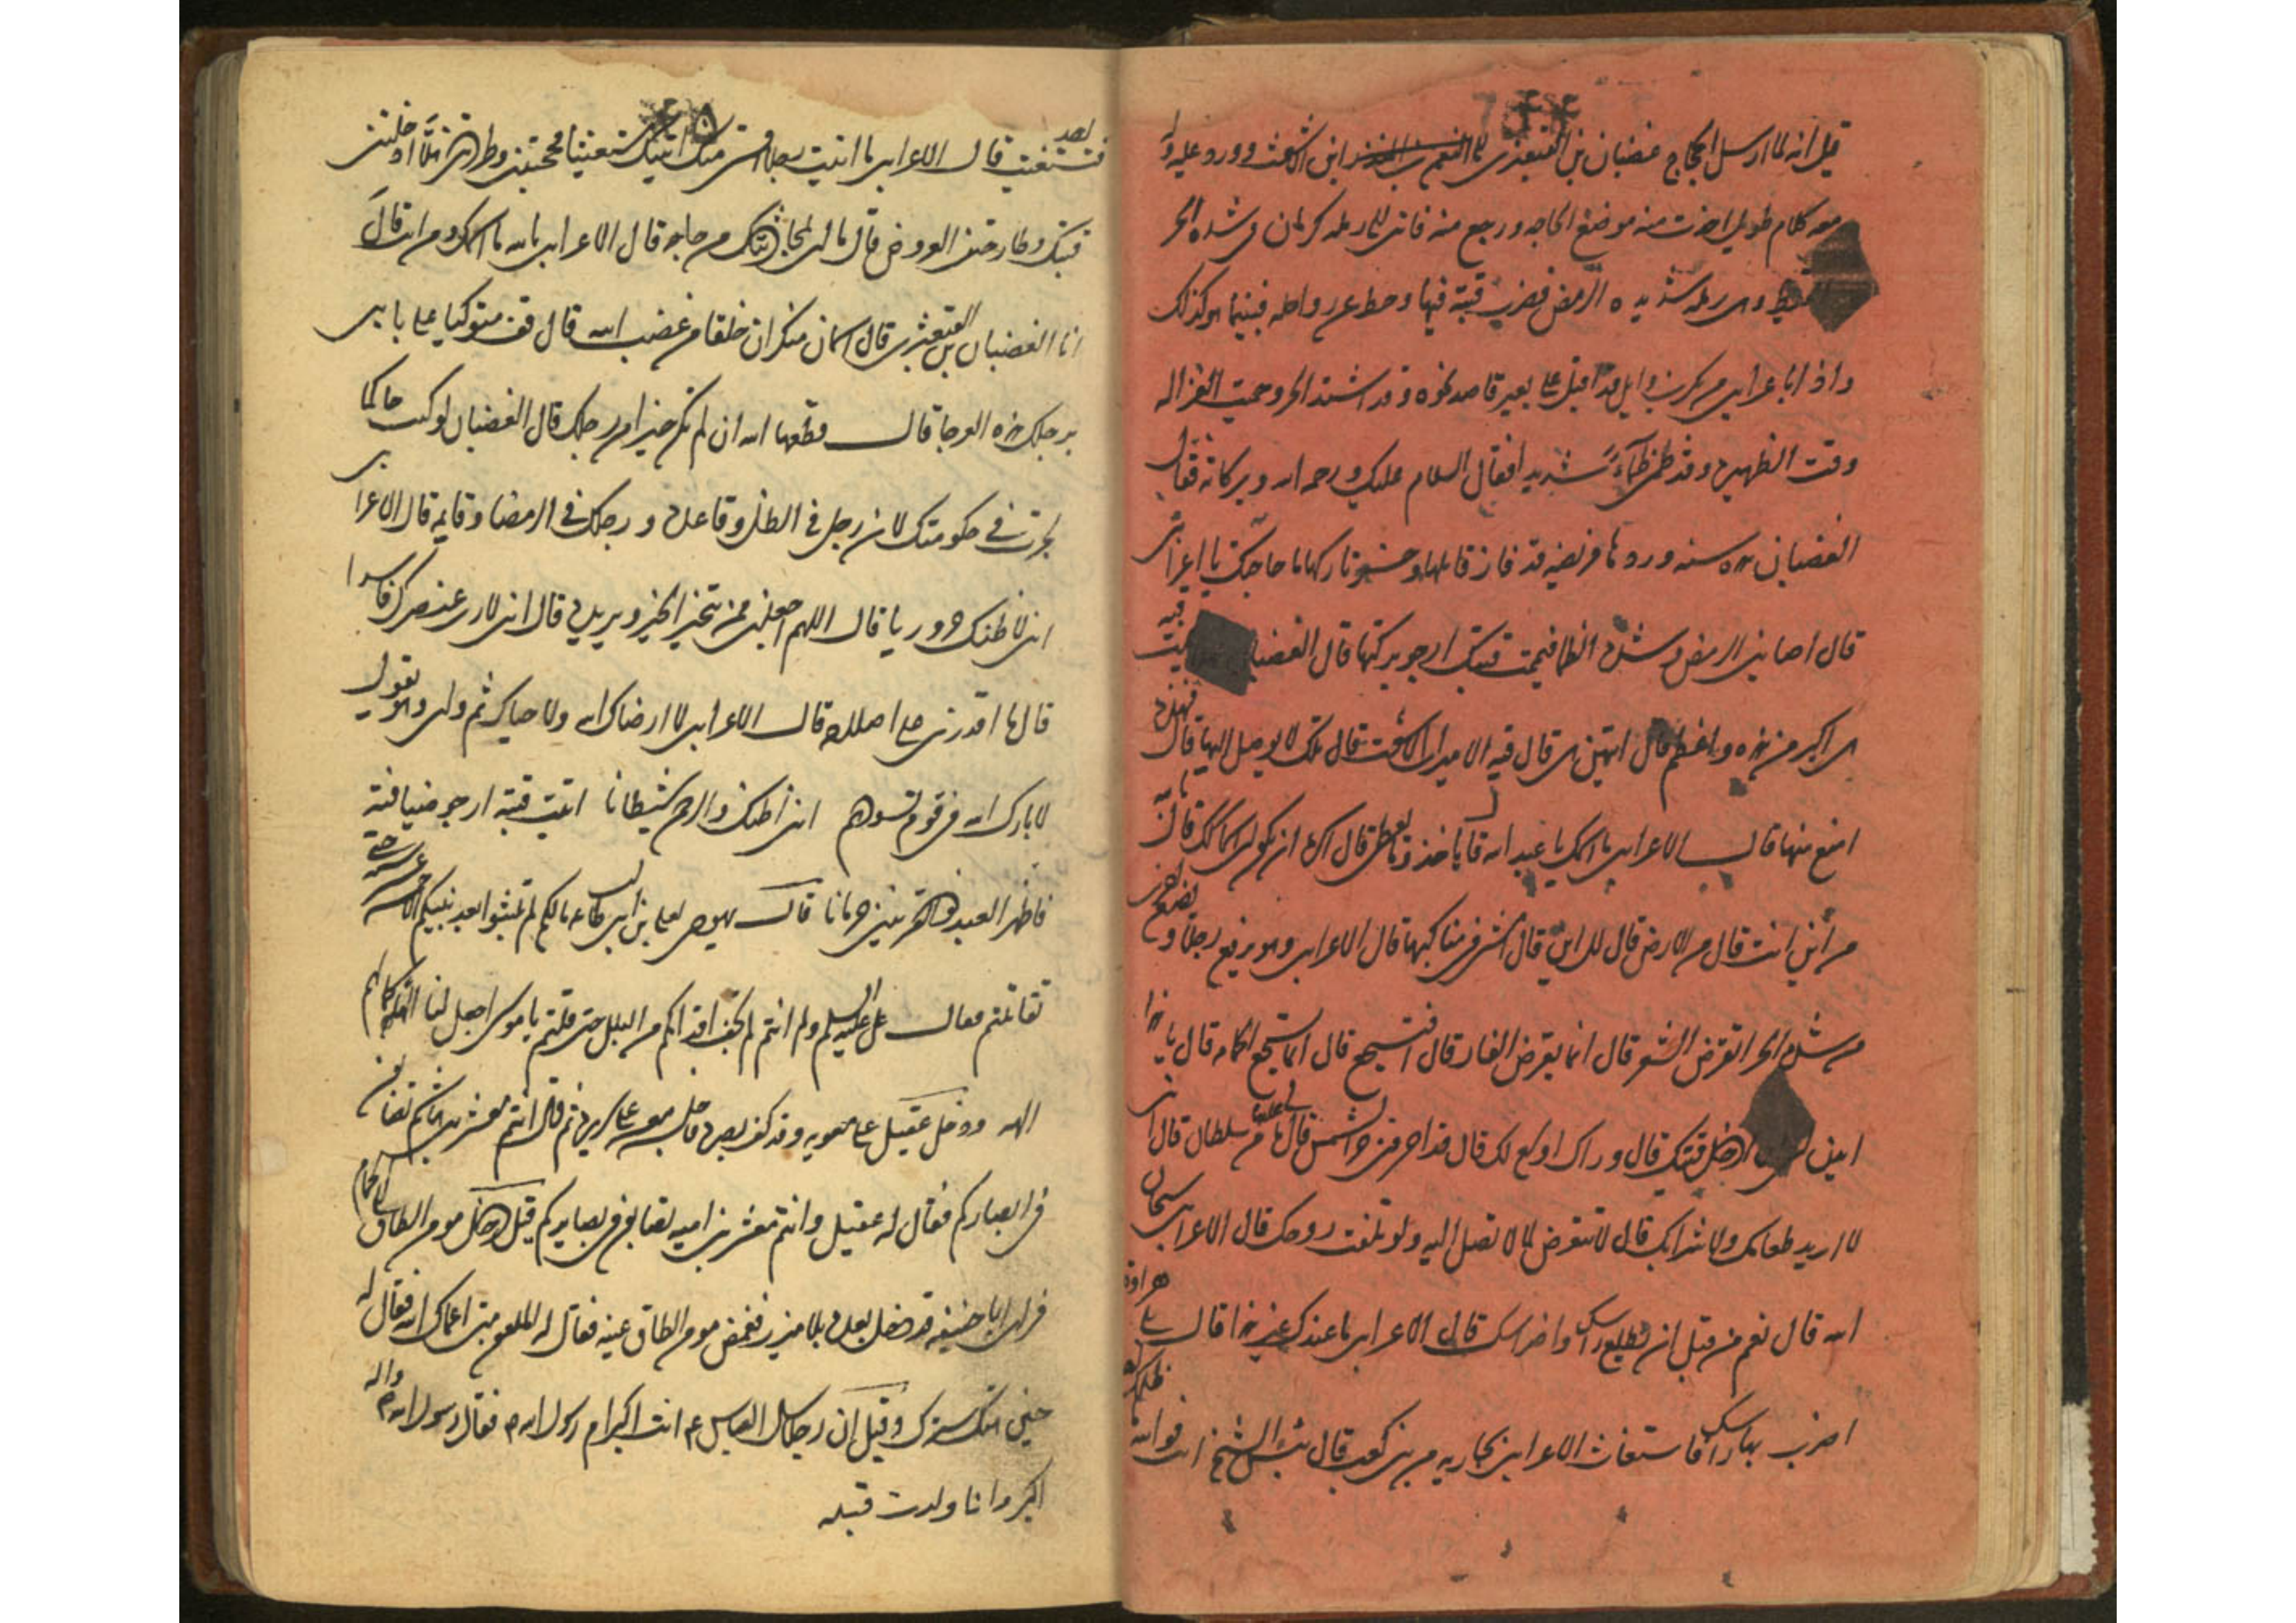 قيل انه لما ارسل الحجاج غضبان بن القبعثرى الى ابن الاشعث وورد عليه وله
معه كلام طويل اخذت منه موضع الحاجه ورجع منه فاتى الى رمله كرمان فى شده الحر
القيظ وهى رمله شديده الرمض فضرب قبته فيها وحط عن رواحله فبينما هو كذلك
واذا باعرابى من بكر بن وايل قد اقبل على بعير قاصد نحوه وقد اشتد الحر وحميت الغزاله
وقت الظهيره وقد ظمئ ظمآءً شديدا فقال السلام عليك ورحمه الله وبركاته فقال
الغضبان هذه سنه وردها فريضه قد فاز قايلها وخسر تاركها ما حاجتك يا اعرابى
قال اصابنى الرمض وشده الظما فيممت قبتك ارجو بركتها قال الغضبان فهلا تيممت قبه
هى اكبر من هذه واعظم قال ايتهن هى قال قبه الامير ابن الاشعث قال تلك لا يوصل اليها قال فهذه
امنع منها قال الاعرابى ما اسمك يا عبد الله قال اخذ وقال يعطى قال اكره ان يكون لى اسمان قال
من أين انت قال من الارض قال الى اين قال امشى فى مناكبها قال الاعرابى وهو يرفع رجلا ويضع اخرى
من شده الحر اتقرض الشعر قال انما يقرض الفار قال افتسجع قال انما تسجع الحمامه قال يا هذا
ايذن لى ان ادخل قبتك قال وراك اوسع لك قال قد احرقنى حر الشمس قال ما لى عليها من سلطان قال انى
لا اريد طعامك ولا شرابك قال لا تتعرض لما لا تصل اليه ولو تلفت روحك قال الاعرابى سبحان
الله قال نعم من قبل ان تطلع راسك واضراسك قال الاعرابى ما عندك غير هذا قال بلى هراوه
اضرب بها راسك فاستغاث الاعرابى يا جار بنى كعب قال بئس الشيخ انت فوالله ما ظلمك احد
فتستغيث قال الاعرابى ما رايت رجلا اقسى منك اتيتك مستغيثا فحجبتنى وطردتنى هلا ادخلتنى
قبتك وطارحتنى القريض قال ما لى لمحادثتك من حاجه قال الاعرابى بالله ما اسمك ومن انت قال
انا الغضبان بن القبعثرى قال اسمان منكران خلقا من غضب الله قال قف متوكيا على بابى
برجلك هذه العوجا قال قطعها الله ان لم تكن خيرا من رجلك قال الغضبان لو كنت حاكما
لجرت فى حكومتك لان رجلى فى الظل وقاعده ورجلك فى الرمضا وقايمه قال الاعرابى
انى لاظنك حروريا قال اللهم اجعلنى ممن يتحرى الخير ويريده قال انى لارى عنصرك فاسدا
قال ما اقدرنى على اصلاحه قال الاعرابى لا ارضاك الله ولا حياك ثم ولى وهو يقول
لا بارك الله فى قوم تسودهم انى اظنك والرحمن شيطانا اتيت قبته ارجو ضيافته
فاظهر العبد ذو القرنين حرمانا قال يهودى لعلى بن ابى طالب ع ما لكم لم تلبثوا بعد نبيكم الا خمس عشره حتى
تقاتلتم فقال على عليه السلم ولم انتم لم تجف اقدامكم من البلل حتى قلتم يا موسى اجعل لنا الها كما لهم
الهه ودخل عقيل على معويه وقد كف بصره فاجلسه معه على سريره ثم قال انتم معشر بنى هاشم تصابون
فى ابصاركم فقال له عقيل وانتم معشر بنى اميه تصابون فى بصايركم قيل دخل مومن الطاق الى الحمام
فراى ابا حنيفه قد دخل بعده بلا ميزر فغمض مومن الطاق عينه فقال له الملعون متى اعماك الله فقال له
حين هتك سترك وقيل ان رجلا سال العباس ع انت اكبر ام رسول الله ص فقال رسول الله ص واله
اكبر وانا ولدت قبله